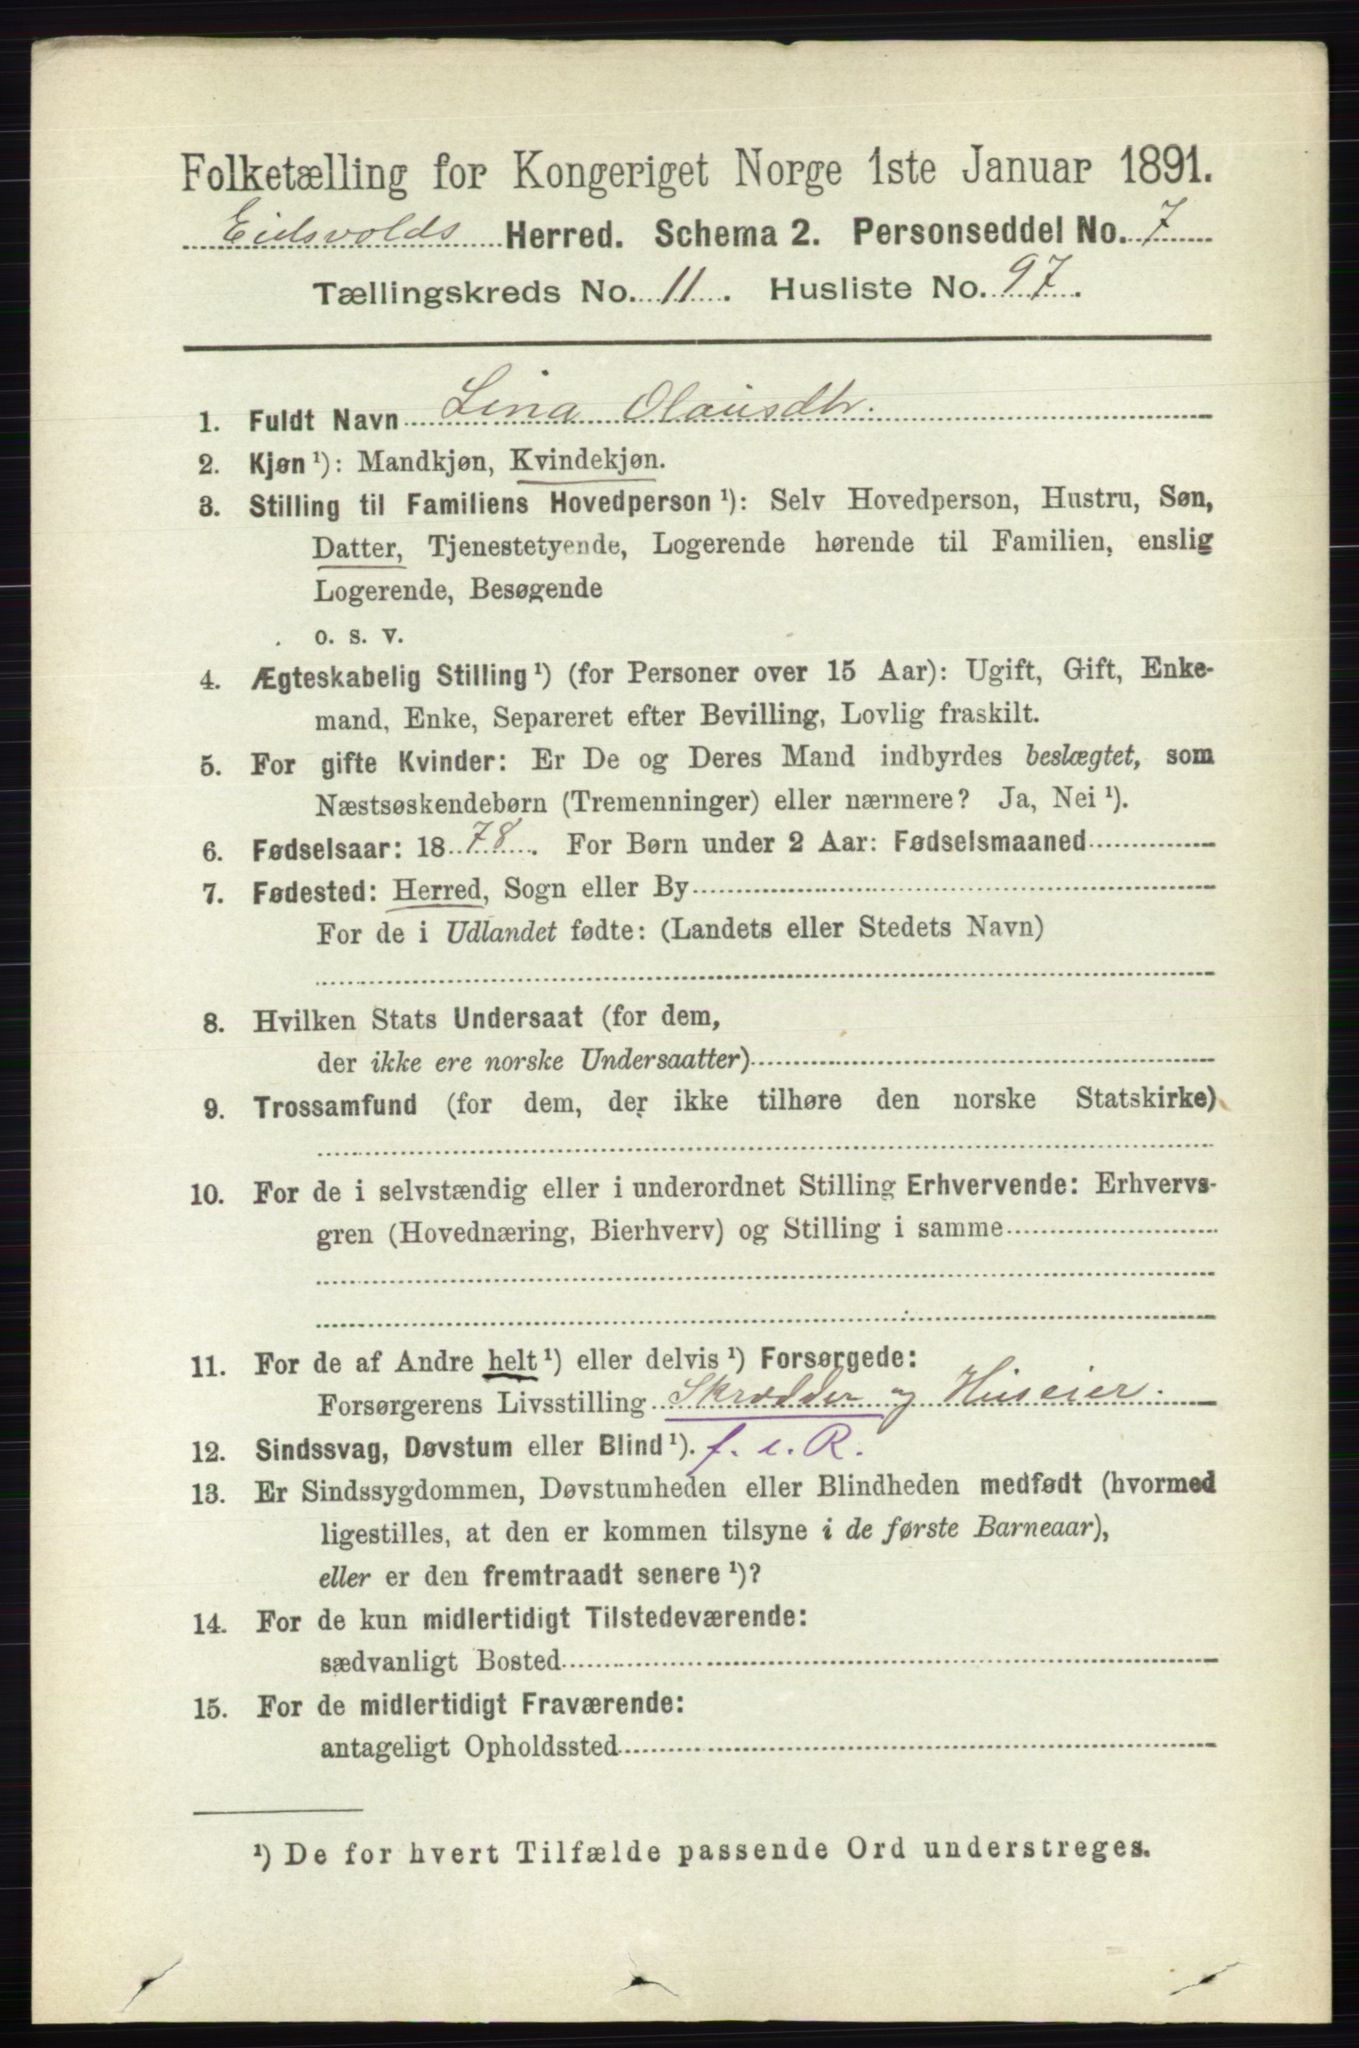 Folketælling for Kongeriget Norge 1ste Januar 1891.
Eidsvolds Herred. Schema 2. Personseddel No. 7
Tællingskreds No. 11. Husliste No. 97.
1. Fuldt Navn Lina Olausdtr.
2. Kjøn ¹): Mandkjøn, Kvindekjøn.
3. Stilling til Familiens Hovedperson ¹): Selv Hovedperson, Hustru, Søn,
Datter, Tjenestetyende, Logerende hørende til Familien, enslig
Logerende, Besøgende
o. s. v.
4. Ægteskabelig Stilling ¹) (for Personer over 15 Aar): Ugift, Gift, Enke-
mand, Enke, Separeret efter Bevilling, Lovlig fraskilt.
5. For gifte Kvinder: Er De og Deres Mand indbyrdes beslægtet, som
Næstsøskendebørn (Tremenninger) eller nærmere? Ja, Nei ¹).
6. Fødselsaar: 1878. For Børn under 2 Aar: Fødselsmaaned
7. Fødested: Herred, Sogn eller By
For de i Udlandet fødte: (Landets eller Stedets Navn)
8. Hvilken Stats Undersaat (for dem,
der ikke ere norske Undersaatter)
9. Trossamfund (for dem, der ikke tilhøre den norske Statskirke)
10. For de i selvstændig eller i underordnet Stilling Erhvervende: Erhvervs-
gren (Hovednæring, Bierhverv) og Stilling i samme
11. For de af Andre helt ¹) eller delvis ¹) Forsørgede:
Forsørgerens Livsstilling Skrædder og Huseier.
12. Sindssvag, Døvstum eller Blind ¹). f. i. R.
13. Er Sindssygdommen, Døvstumheden eller Blindheden medfødt (hvormed
ligestilles, at den er kommen tilsyne i de første Barneaar),
eller er den fremtraadt senere ¹)?
14. For de kun midlertidigt Tilstedeværende:
sædvanligt Bosted
15. For de midlertidigt Fraværende:
antageligt Opholdssted
¹) De for hvert Tilfælde passende Ord understreges.